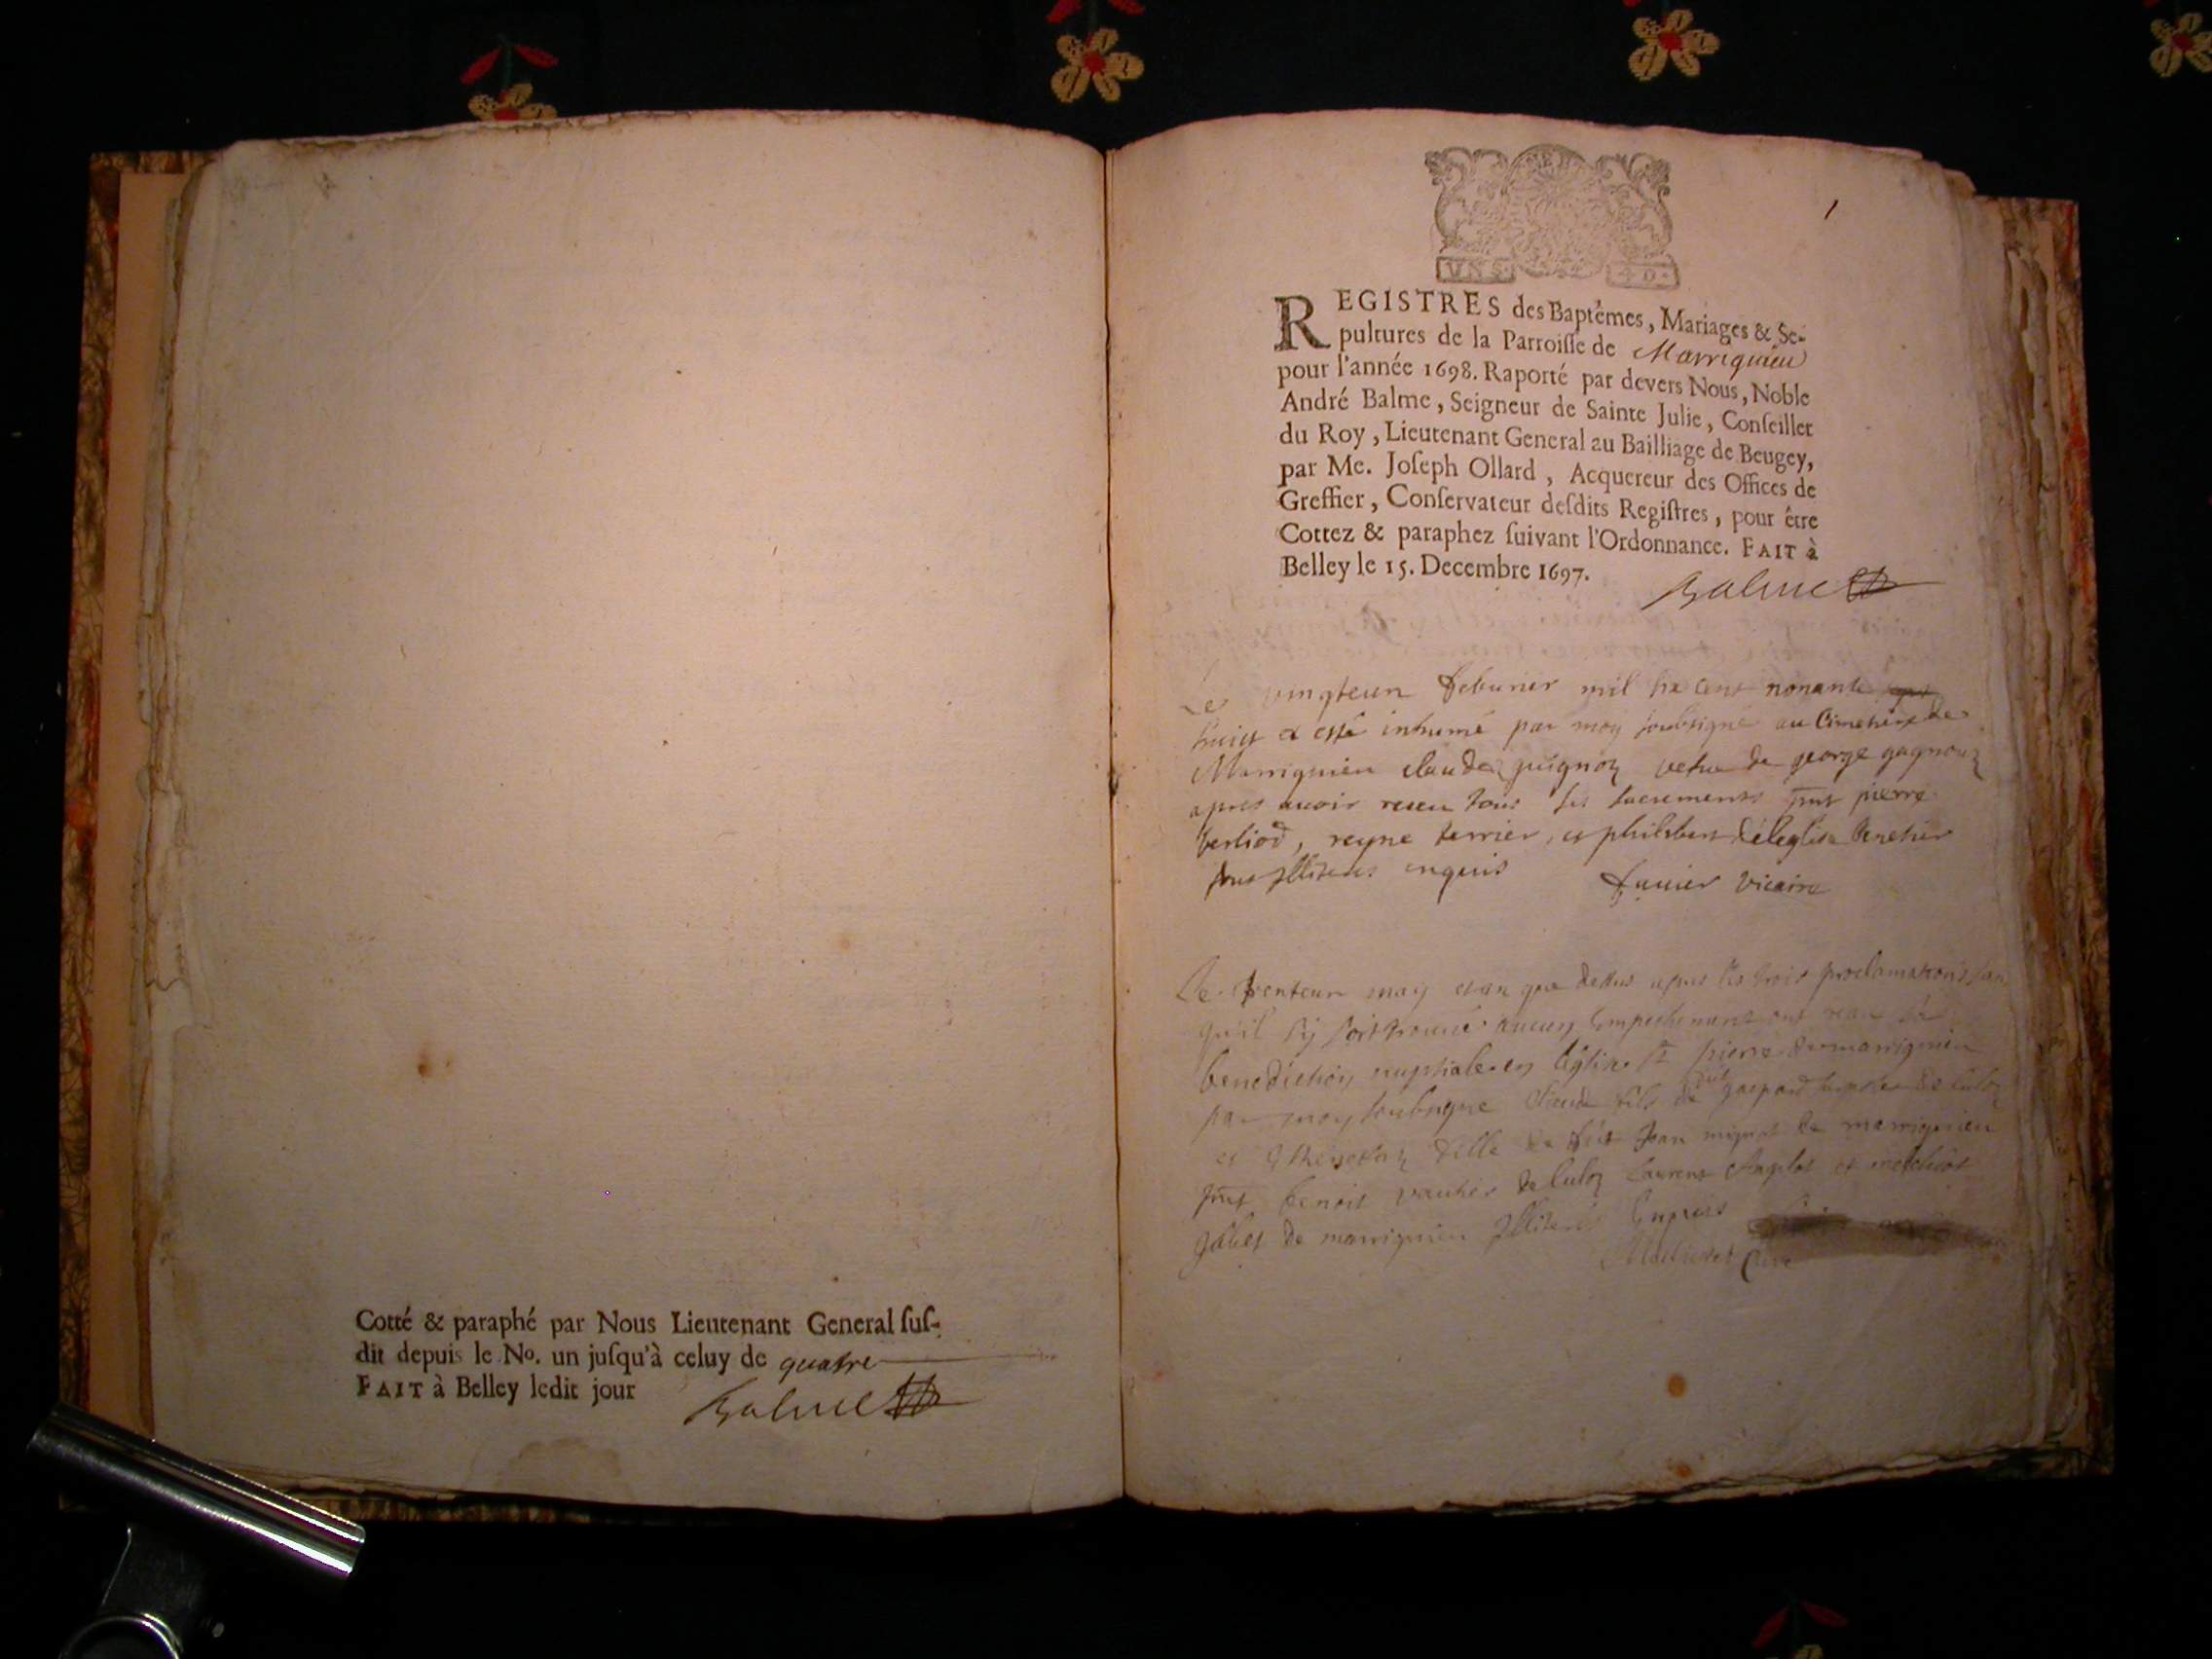 Cotté & paraphé par Nous Lieutenant General ſuſ-
dit depuis le No. un juſqu'à celuy de quatre
FAIT à Belley ledit jour
Balme
1
UN S. 4 D.
REGISTRES des Baptêmes, Mariages & Se-
pultures de la Parroiſſe de Marrignieu
pour l'année 1698. Raporté par devers Nous, Noble
André Balme, Seigneur de Sainte Julie, Conſeiller
du Roy, Lieutenant General au Bailliage de Beugey,
par Me. Joſeph Ollard, Acquereur des Offices de
Greffier, Conſervateur deſdits Regiſtres, pour être
Cottez & paraphez ſuivant l'Ordonnance. FAIT à
Belley le 15. Decembre 1697.
Balme
Le vingteun feburier mil six cent nonante
huict a esté inhumé par moy soubsigné au Cimetiere de
Marrignieu clauda vefve de george
apres avoir receu tous les sacrements pnt pierre
berliod, reyne terrier, et philibert de leglise
tous Illiterés enquis vicaire
Le trenteun may et an que dessus apres les trois proclamations
qu'il sy soit trouvé aucun Empeschement ont receu la
benediction nuptiale en leglise St pierre de marrignieu
par moy soubsigné Claude fils de fut gaspard de
et fille de fut Jean de marrignieu
pnt benoit de laurent et melchior
de marrignieu Illiterés Enquis
Curé